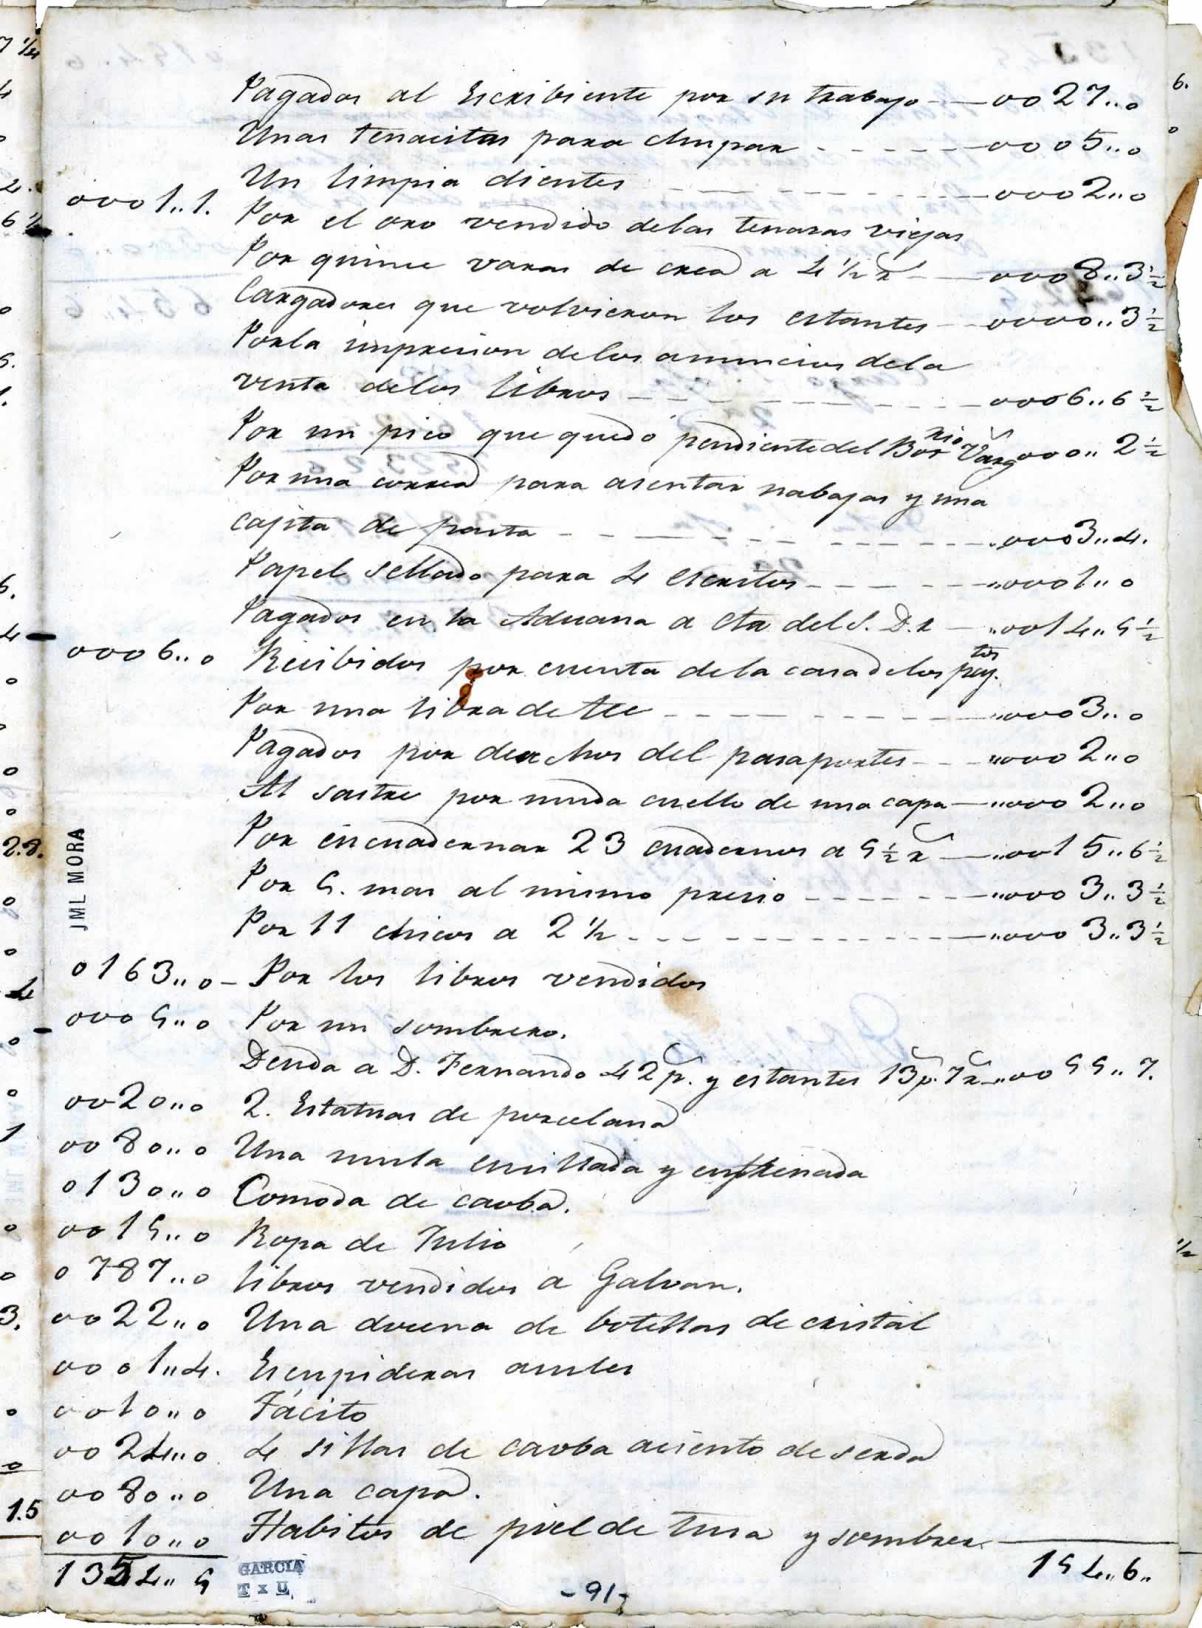 Pagados al Escribiente por su trabajo — 0027..0
Unas tenacitas para chupar - - - - - 0005..0
Un limpia dientes - - - - 0002..0
0001..1. Por el oro vendido delas tenasas viejas
Por quince varas de crea a 4 1/2 r — 0008..3 1/2
Cargadores que volvieron los estantes — 0000..3 1/2
Porla impresion delos anuncios dela
venta delos libros - - - - 0006..6 1/2
Por un pico que quedó pendiente del Bor nio Varg 000.. 2 1/2
Por una correa para asentar nabajas y una
cajita de pasta - - - - - 0003..4.
Papel sellado para 4 escritos - - - 0001..0
Pagados en la Aduana a Cta del S. D. R — 0014..5 1/2
0006..0 Recibidos por cuenta dela casa delos pey. tos
Por una libra de tee - - - - 0003..0
Pagados por derechos del pasaportes - - 0002..0
Al sastre por muda cuello de una capa — 0002..0
Por encuadernar 23 cuadernos a 5 1/2 r — 0015..6 1/2
Por 5. mas al mismo presio - - - - 0003..3 1/2
Por 11 chicos a 2 1/2 - - - - 0003..3 1/2
0163..0 – Por los libros vendidos
0005..0 Por un sombrero.
Deuda a D. Fernando 42 p. y estantes 13 p. 7 r — 0055..7.
0020..0 2. Estatuas de porcelana
0080..0 Una mula ensillada y enfrenada
0130..0 Comoda de caoba.
0015..0 Ropa de Julio
0787..0 libros vendidos a Galvan.
0022..0 Una docena de botellas de cristal
0001..4. Escupideras asules
0010..0 Tácito
0024..0 4 sillas de caoba aciento de serda
0080..0 Una capa.
0010..0 Habitos de piel de tusa y sombrer.
1354..5
154..6..
-91-
JML MORA
GARCIA
T x U.